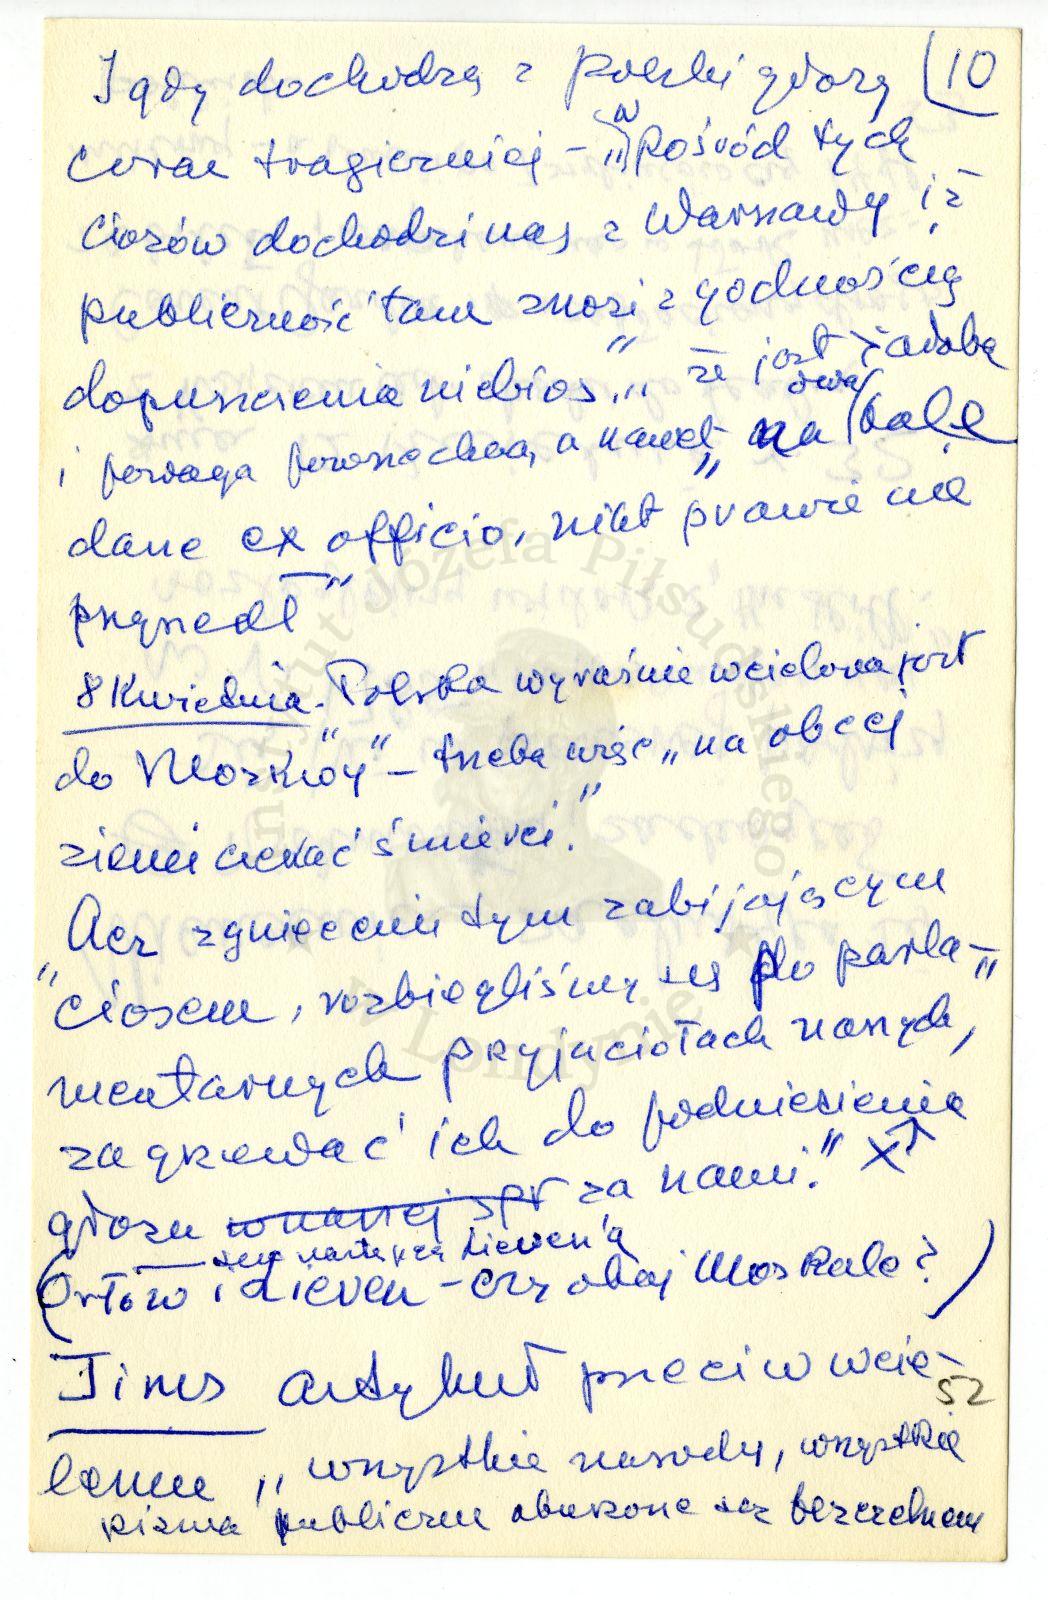 I gdy dochodzą z polski głosy 10
coraz tragiczniej – „W pośród tych
ciosów dochodzi nas z Warszawy iż
publiczność tam znosi z godnością
dopuszczenia niebios", że jest żałoba
i powaga powszechna, a nawet „na owe bale
dane ex officio, nikt prawie nie
przyszedł"
8 Kwietnia. Polska wyraźnie wcielona jest
do "Moskwy" – trzeba więc „na obcej
ziemi czekać śmierci."
„Acz zgnieceni tym zabijającym
ciosem, rozbiegliśmy się po parla-
mentarnych przyjaciołach naszych,
zagrzewać ich do podniesienia
głosu w naszej spr za nami." X
Lieven'a
(Orłow i Lieven – czy obaj Moskale?)
Times artykuł przeciw wcie-
52
leniu „wszystkie narody, wszystkie
pisma publiczne oburzone są bezczelnem
Instytut Józefa Piłsudskiego
w Londynie